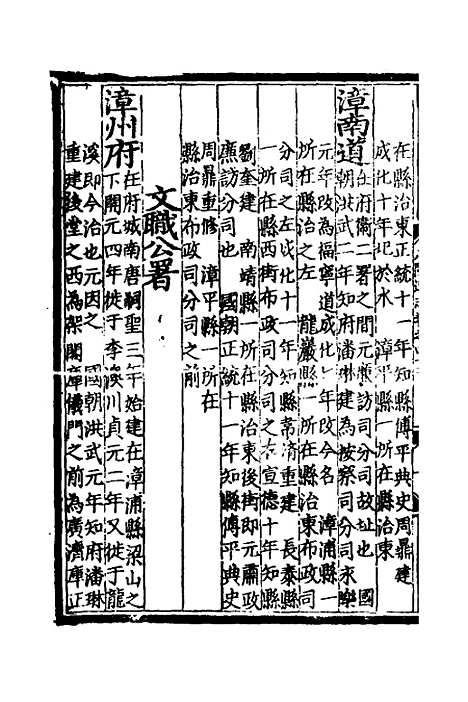 在縣治東正統十一年知縣傅平典史周鼎建
成化十年圮於水　漳平縣一所在縣治東
漳南道
在府衛二署之間元廉訪司分司故址也　國
朝洪武二年知府潘琳建為按察司分司永樂
元年改為福寧道成化七年改今名　漳浦縣一
所在縣治之左　龍巖縣一所在縣治東布政司
分司之左成化十一年知縣常濟重建　長泰縣
一所在縣西街布政司分司之右宣德十年知縣
劉奎建　南靖縣一所在縣治東後街即元肅政
廉訪分司也　國朝正統十一年知縣傅平典史
周鼎重修　漳平縣一所在
縣治東布政司分司之前
文職公署
漳州府
在府城南唐嗣聖三年始建在漳浦縣梁山之
下開元四年徙于李澳川貞元二年又徙于龍
溪即今治也元因之　國朝洪武元年知府潘琳
重建後堂之西為架閣庫儀門之前為廣濟庫正